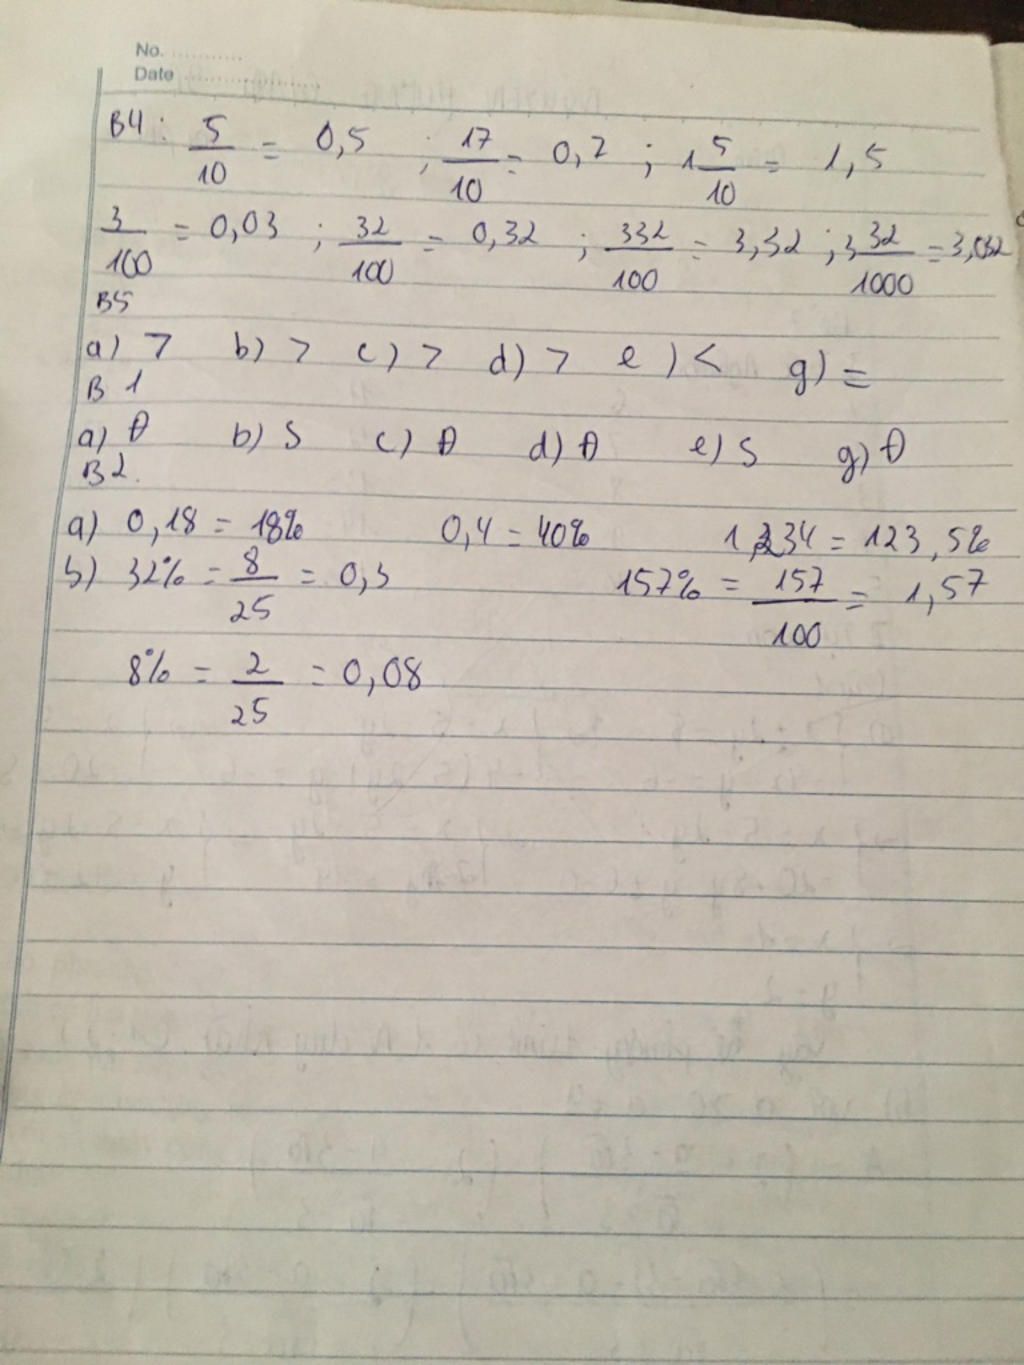 No. ............
Date ......................
B4: 5/10 = 0,5 ; 17/10 = 0,7 ; 1 5/10 = 1,5
3/100 = 0,03 ; 32/100 = 0,32 ; 332/100 = 3,32 ; 3 32/1000 = 3,032
B5
a) > b) > c) > d) > e) < g) =
B1
a) Đ b) S c) Đ d) Đ e) S g) Đ
B2.
a) 0,18 = 18% 0,4 = 40% 1,234 = 123,5%
b) 32% = 8/25 = 0,3 157% = 157/100 = 1,57
8% = 2/25 = 0,08